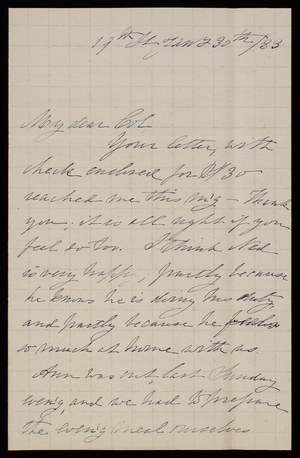 19th St Jany 30th/83
My dear Col
Your letter, with
check enclosed for $130
reached me this m'g - Thank
you; it is all right if you
feel so too. I think Ned
is very happy, partly because
he knows he is doing his duty,
and partly because he feels
so much at home with us.
Ann was out, last Sunday
even'g and we had to prepare
the even'g meal ourselves